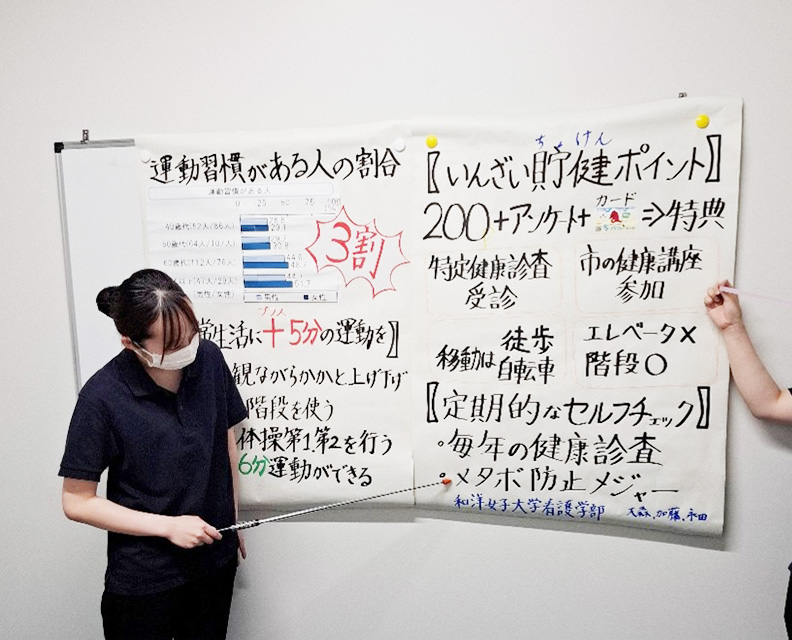 運動習慣がある人の割合
運動習慣がある人
0 25 50 75 100
3割
男性 女性
常生活に+5分の運動を】
プラス
観ながらかかと上げ下げ
階段を使う
体操第1.第2を行う
6分運動ができる
ちょけん
【いんざい貯健ポイント】
200+アンケート+カード⇒特典
特定健康診査
受診
市の健康講座
参加
移動は徒歩
自転車
エレベータ×
階段○
【定期的なセルフチェック】
・毎年の健康診査
・メタボ防止メジャー
和洋女子大学看護学部 大森、加藤、永田